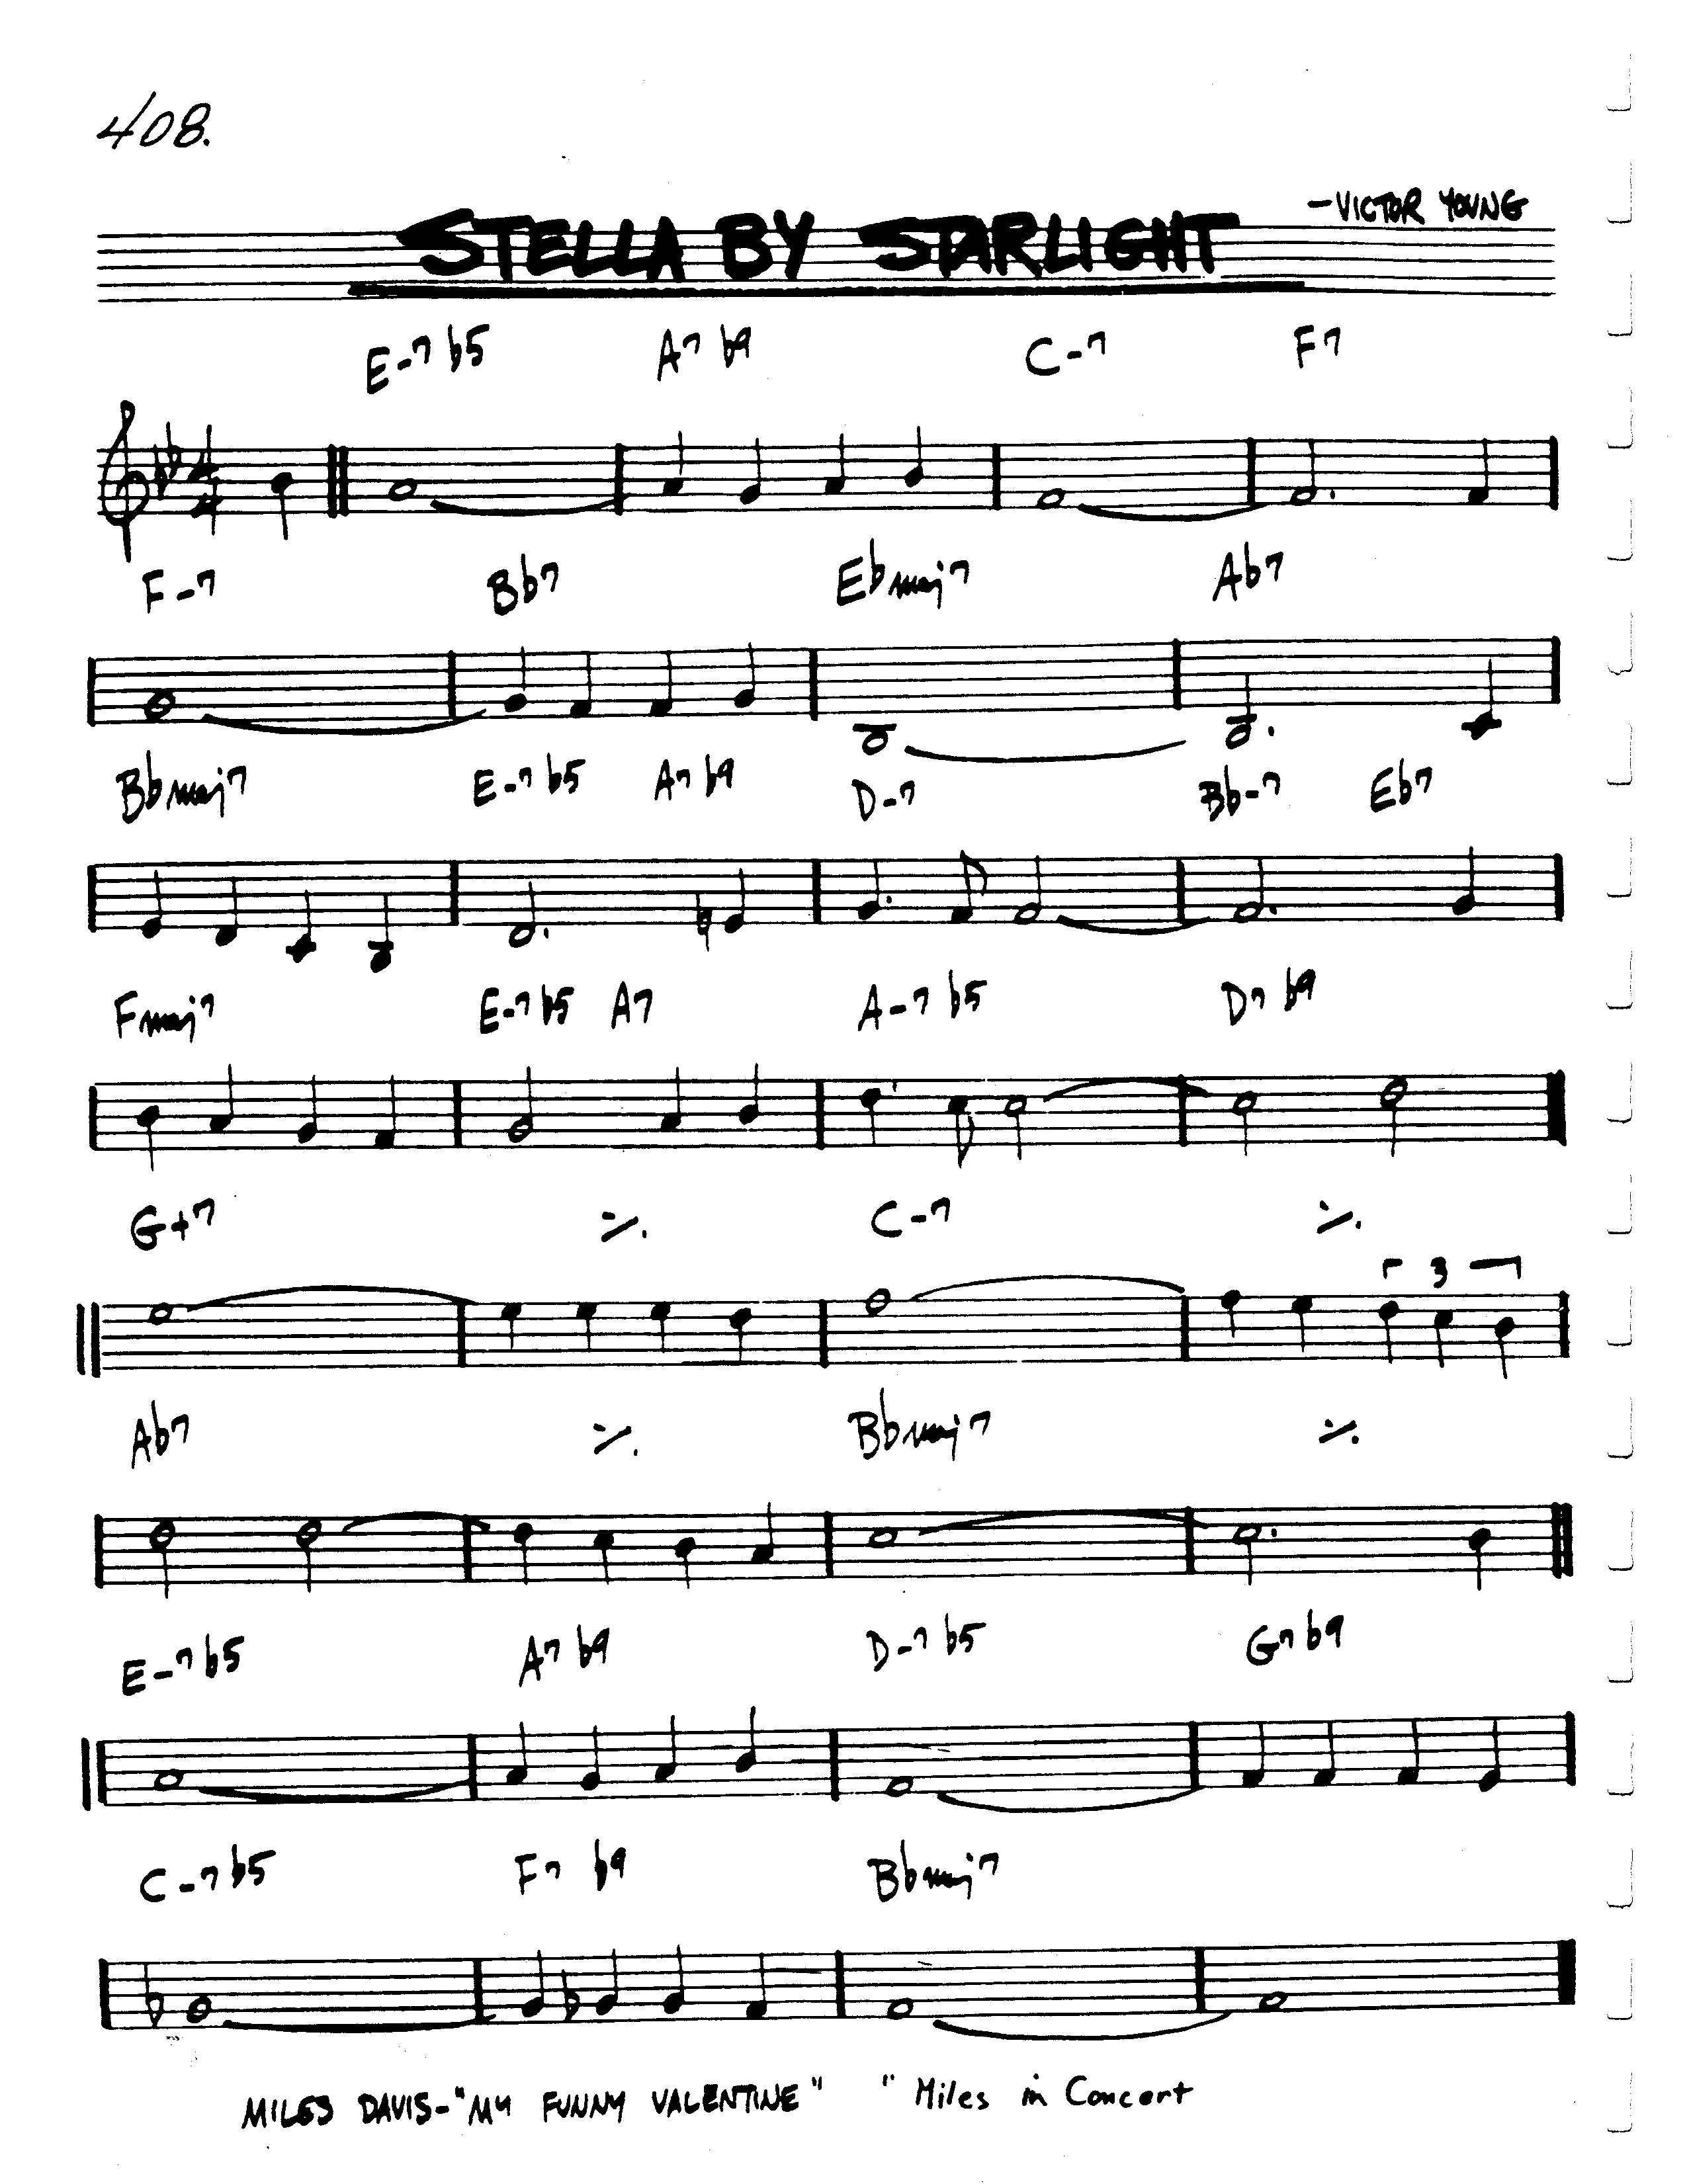 408.
STELLA BY STARLIGHT
-VICTOR YOUNG
E-7 b5 A7 b9 C-7 F7
4
4
F-7 Bb7 Ebmaj7 Ab7
Bbmaj7 E-7 b5 A7 b9 D-7 Bb-7 Eb7
Fmaj7 E-7 b5 A7 A-7 b5 D7 b9
G+7 C-7
3
Ab7 Bbmaj7
E-7 b5 A7 b9 D-7 b5 G7 b9
C-7 b5 F7 b9 Bbmaj7
MILES DAVIS-"MY FUNNY VALENTINE" " Miles in Concert